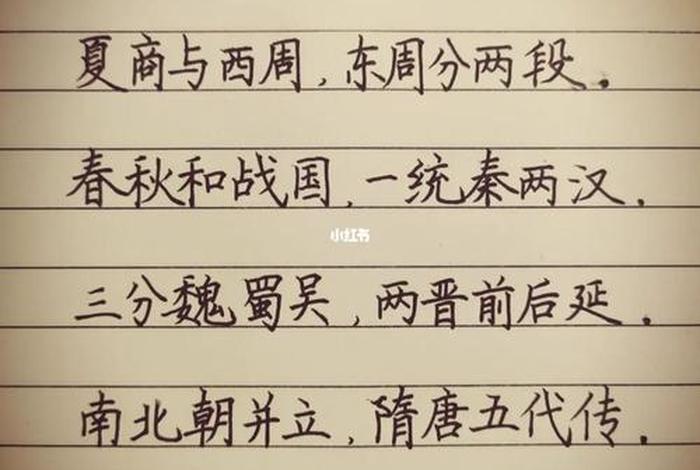 夏商与西周，东周分两段.
春秋和战国，一统秦两汉.
小红书
三分魏蜀吴，两晋前后延.
南北朝并立，隋唐五代传.